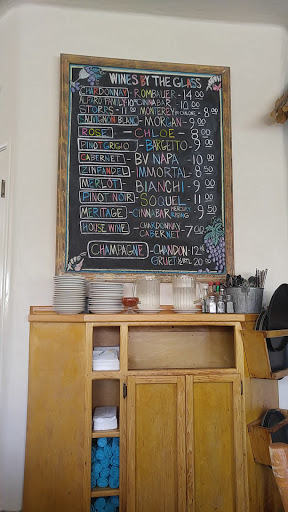 WINES BY THE GLASS
CHARDONNAY - ROMBAUER - 14 00
ALFARO FAMILY - 10 00 CINNABAR - 10 00
STORRS - 11 00 MONTEREY - 8 00
SAUVIGNON BLANC - MORGAN - 9 00
ROSE - CHLOE - 8 00
PINOT GRIGIO - BARGETTO - 9 00
CABERNET - BV NAPA - 10 00
ZINFANDEL - IMMORTAL - 8 50
MERLOT - BIANCHI - 9 50
PINOT NOIR - SOQUEL - 11 00
MERITAGE - CINNABAR MERCURY RISING - 9 50
HOUSE WINE - CHARDONNAY CABERNET - 7 00
CHAMPAGNE - CHANDON - 12
GRUET 20 00